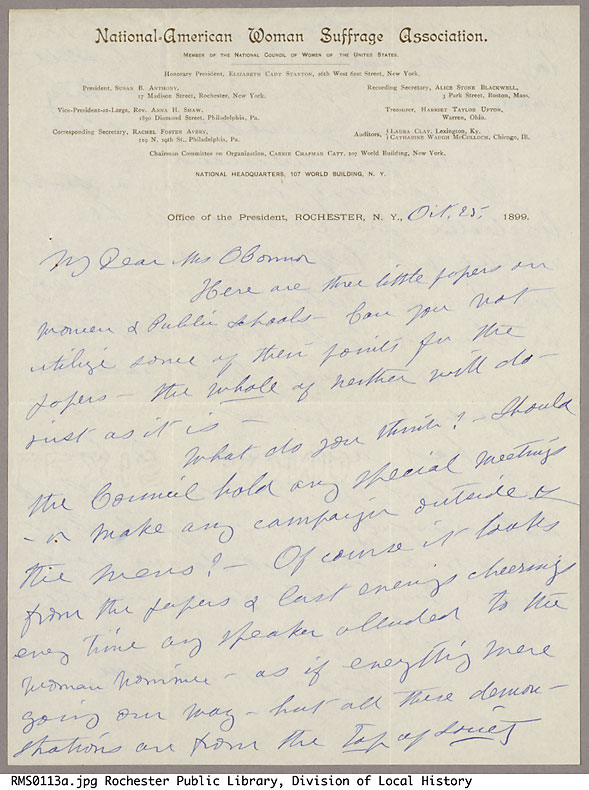 National-American Woman Suffrage Association.
Member of the National Council of Women of the United States.
Honorary President, Elizabeth Cady Stanton, 26th West 61st Street, New York.
President, Susan B. Anthony,
17 Madison Street, Rochester, New York.
Recording Secretary, Alice Stone Blackwell,
3 Park Street, Boston, Mass.
Vice-President-at-Large, Rev. Anna H. Shaw,
1830 Diamond Street, Philadelphia, Pa.
Treasurer, Harriet Taylor Upton,
Warren, Ohio.
Corresponding Secretary, Rachel Foster Avery,
119 N. 19th St., Philadelphia, Pa.
Auditors, { Laura Clay, Lexington, Ky.
{ Catharine Waugh McCulloch, Chicago, Ill.
Chairman Committee on Organization, Carrie Chapman Catt, 107 World Building, New York.
NATIONAL HEADQUARTERS, 107 WORLD BUILDING, N. Y.
Office of the President, ROCHESTER, N. Y., Oct. 25, 1899.
My Dear Ms O'Connor
Here are three little papers on
Women & Public schools - Can you not
utilize some of their points for the
papers - the whole of neither will do -
just as it is -
What do you think? - Should
the Council hold any special meetings
- or make any campaign outside of
the mens? - Of course it looks
from the papers & last evenings cheerings
every time any speaker alluded to the
woman nominee - as if everything were
going our way - but all these demon-
strations are from the top of society
RMS0113a.jpg Rochester Public Library, Division of Local History